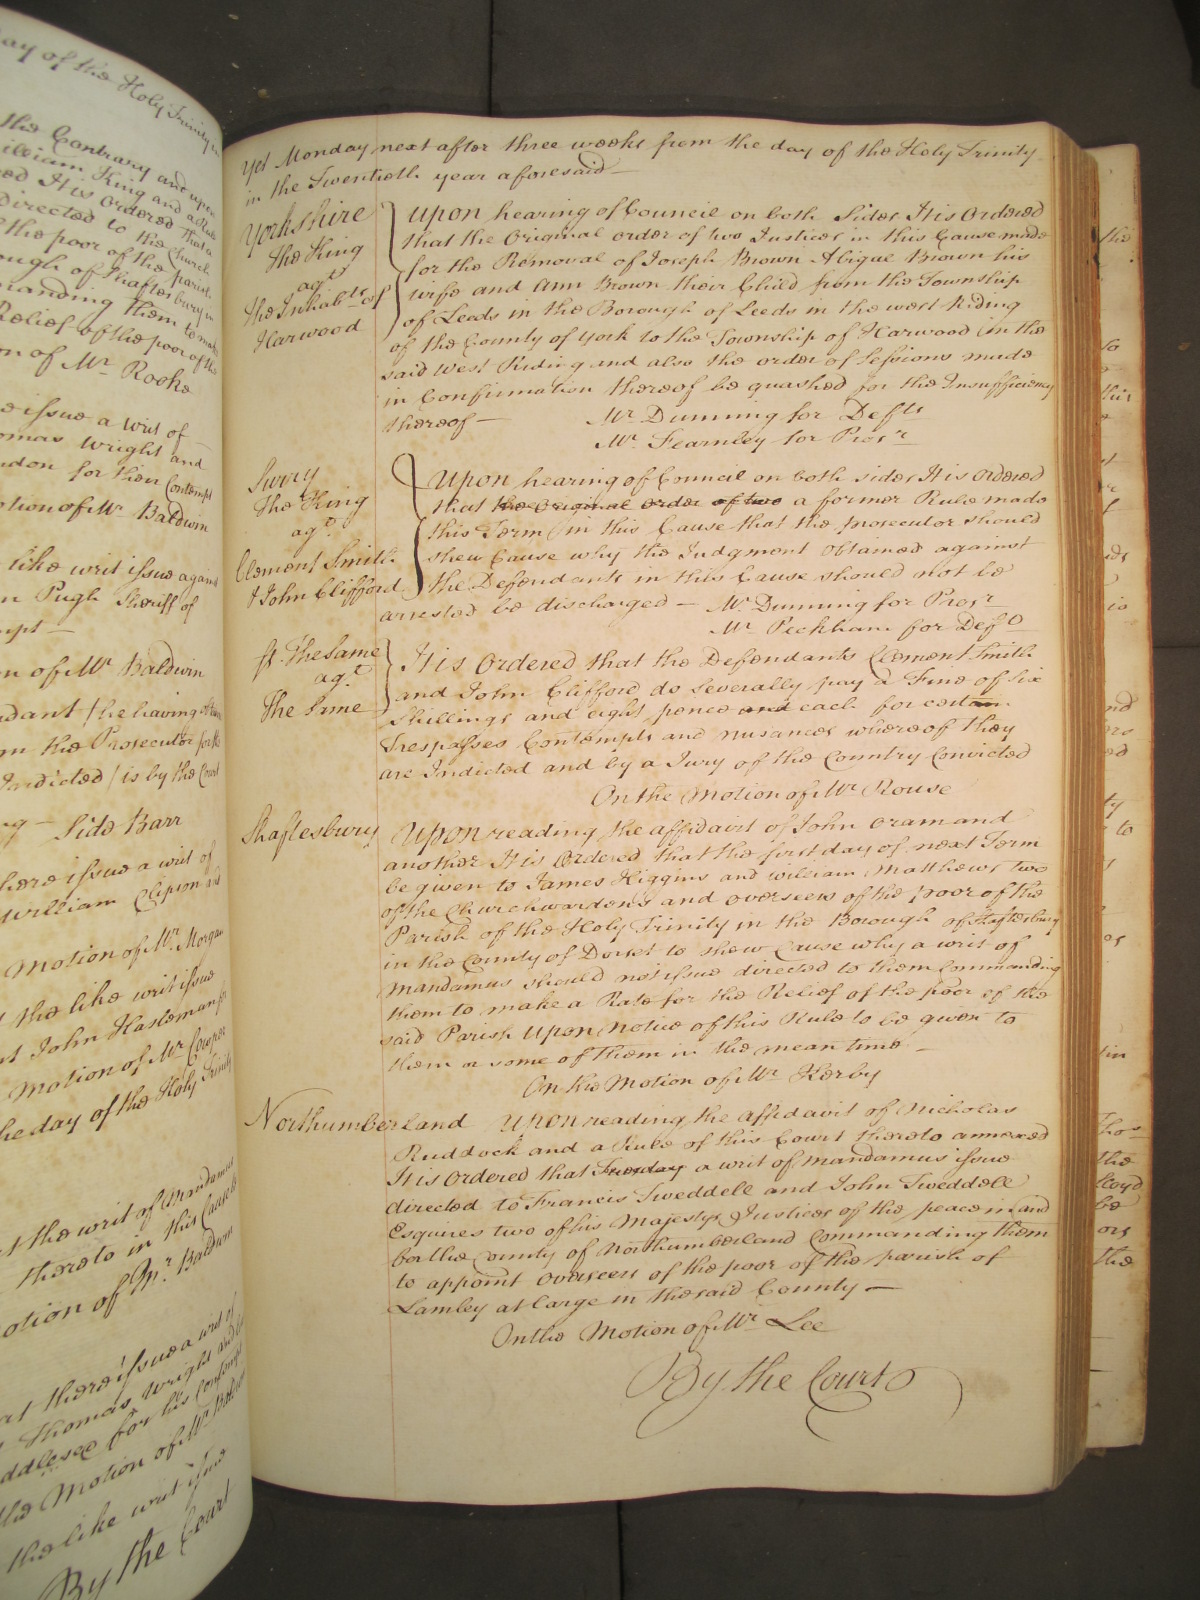 ay of the Holy Trinity in
the Contrary and upon
illiam King and a Rule
ed It is ordered that a
Directed to the Church
the poor of the parish
ough of Shaftesbury in
manding them to make
Relief of the poor of the
on of Mr. Rooke
e issue a writ of
omas Wright and
ndon for their Contempt
otion of Mr. Baldwin
like writ issue against
n Pugh Sheriff of
mpt —
n of Mr. Baldwin
dant / he having
m the Prosecutor for the
Indicted / is by the Court
ng — Side Barr
here issue a writ of
William Clipson
Motion of Mr. Morgan
the like writ issue
st John Hasleman for
Motion of Mr. Cowper
he day of the Holy Trinity
t the writ of Mandamus
thereto in this Cause
otion of Mr. Baldwin
rt there issue a writ of
Thomas Wright and
ddlesex for his Contempt
the Motion of Mr. Baldwin
the like writ issue
By the Court
Yet Monday next after three weeks from the day of the Holy Trinity
in the Twentieth year aforesaid —
Yorkshire
The King
agt.
the Inhabts. of
Harwood
Upon hearing of Councel on both Sides It is Ordered
that the Original order of two Justices in this Cause made
for the Removal of Joseph Brown Abigue Brown his
wife and Ann Brown their Child from the Township
of Leeds in the Borough of Leeds in the west Riding
of the County of York to the Township of Harwood in the
said West Riding and also the order of Sessions made
in Confirmation thereof be quashed for the Insufficiency
thereof —
Mr. Dunning for Defts
Mr. Fearnley for Prosr.
Surry
The King
agt.
Clement Smith
& John Clifford
Upon hearing of Council on both sides It is ordered
that the Original order of two a former Rule made
this Term in this Cause that the prosecutor should
shew Cause why the Judgment obtained against
the Defendants in this Cause should not be
arrested be discharged —
Mr. Dunning for Prosr.
Mr. Peckham for Deft
St. The same
agt.
The same
It is Ordered that the Defendants Clement Smith
and John Clifford do severally pay a Fine of six
Shillings and eight pence and each for certain
Trespasses Contempts and nusances whereof they
are Indicted and by a Jury of the Country Convicted
On the Motion of Mr. Rouse
Shaftesbury
Upon reading the affidavit of John Oram and
another It is Ordered that the first day of next Term
be given to James Higgins and William Matthews two
of the Churchwardens and overseers of the poor of the
Parish of the Holy Trinity in the Borough of Shaftesbury
in the County of Dorset to shew Cause why a writ of
Mandamus should not issue directed to them Commanding
them to make a Rate for the Relief of the poor of the
said Parish Upon Notice of this Rule to be given to
them or some of them in the mean time —
On the Motion of Mr. Kerby
Northumberland
Upon reading the affidavit of Nicholas
Ruddock and a Rule of this Court thereto annexed
It is ordered that Tuesday a writ of mandamus issue
directed to Francis Tweddell and John Tweddell
Esquires two of his Majestys Justices of the peace in and
for the County of Northumberland Commanding them
to appoint overseers of the poor of the parish of
Lamley at large in the said County —
On the Motion of Mr. Lee
By the Court